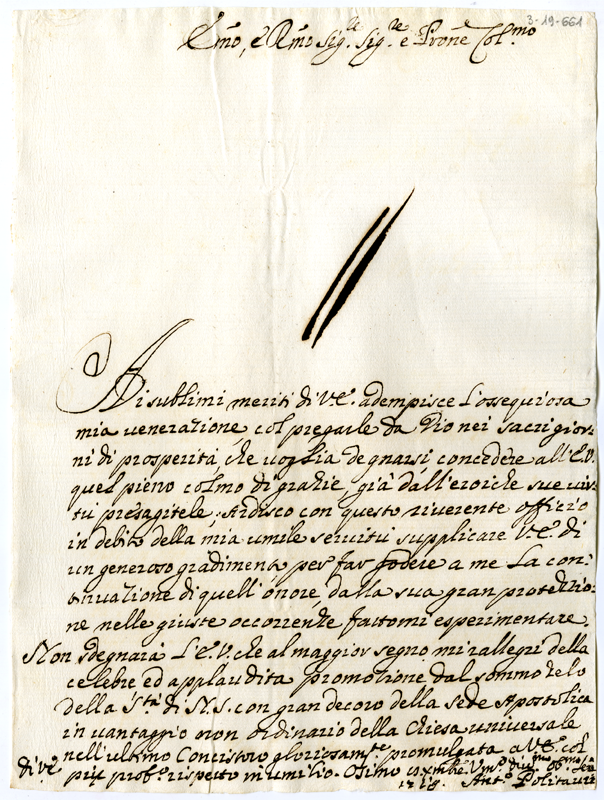 3-19-661
Emo, e Rmo Sig.r Sig.re e Prone Col.mo
Ai sublimi meriti di V.E. adempisce l'ossequiosa
mia venerazione col pregarle da Dio nei sacri gior-
ni di prosperità, che voglia degnarsi concedere all'E.V.
quel pieno colmo di grazie, già dall'eroiche sue vir-
tù presagitele; Ardisco con questo riverente officio
in debito della mia umile servitù supplicare V.E. di
un generoso gradimento per far godere a me la con-
tinuazione di quell'onore, dalla sua gran protezzio-
ne nelle giuste occorrenze fattomi esperimentare.
Non sdegnarà L'E.V. che al maggior segno mi rallegri della
celebre ed applaudita promozione dal sommo zelo
della S.tà di N.S. con gran decoro della Sede Apostolica
in vantaggio non ordinario della Chiesa universale
nell'ultimo Concistoro gloriosam.te promulgata a V.E. col
più prof.o rispetto m'umilio. Osimo
di V.E.
Ant.o